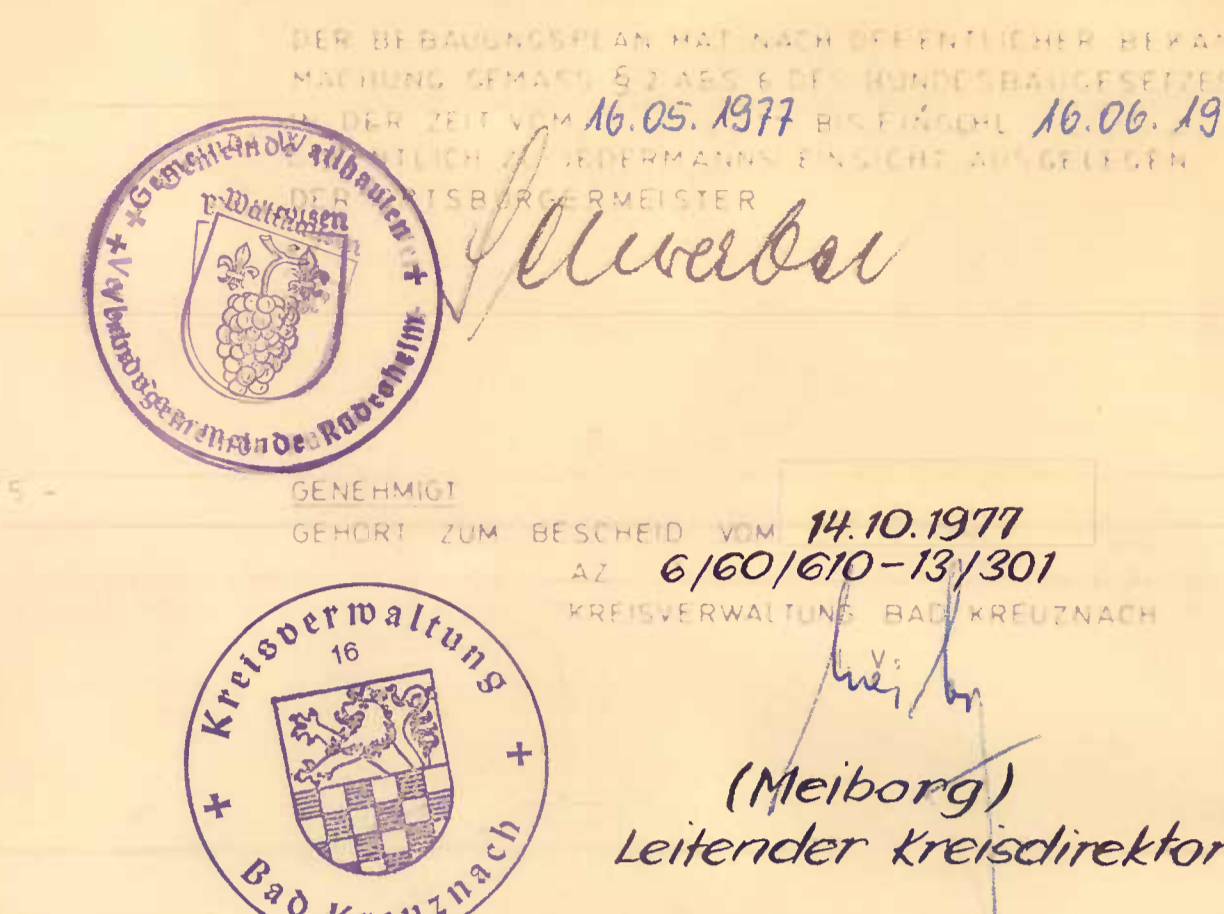 DER BEBAUUNGSPLAN HAT NACH OEFFENTLICHER BEKAN
MACHUNG GEMASS § 2 ABS 6 DES BUNDESBAUGESETZES
IN DER ZEIT VOM 16.05.1977 BIS EINSCHL 16.06.19
ZU JEDERMANNS EINSICHT AUSGELEGEN
DER ORTSBÜRGERMEISTER
Gemeinde Wallhausen
Verbandsgemeinde Rüdesheim
5 -
GENEHMIGT
GEHÖRT ZUM BESCHEID VOM 14.10.1977
AZ 6/60/610-13/301
KREISVERWALTUNG BAD KREUZNACH
I.V.
Kreisverwaltung
16
Bad Kreuznach
(Meiborg)
Leitender Kreisdirektor